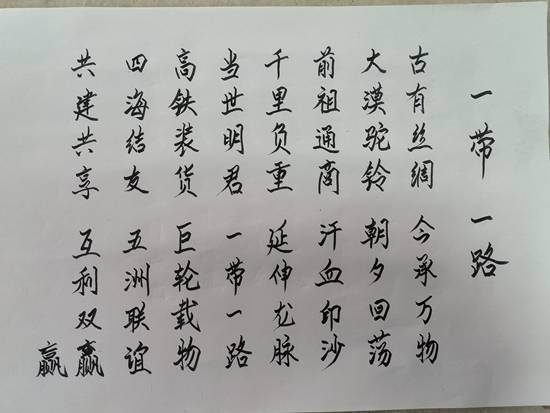 一带一路
古有丝绸 今承万物
大漠驼铃 朝夕回荡
前祖通商 汗血印沙
千里负重 延伸龙脉
当世明君 一带一路
高铁装货 巨轮载物
四海结友 五洲联谊
共建共享 互利双赢
赢